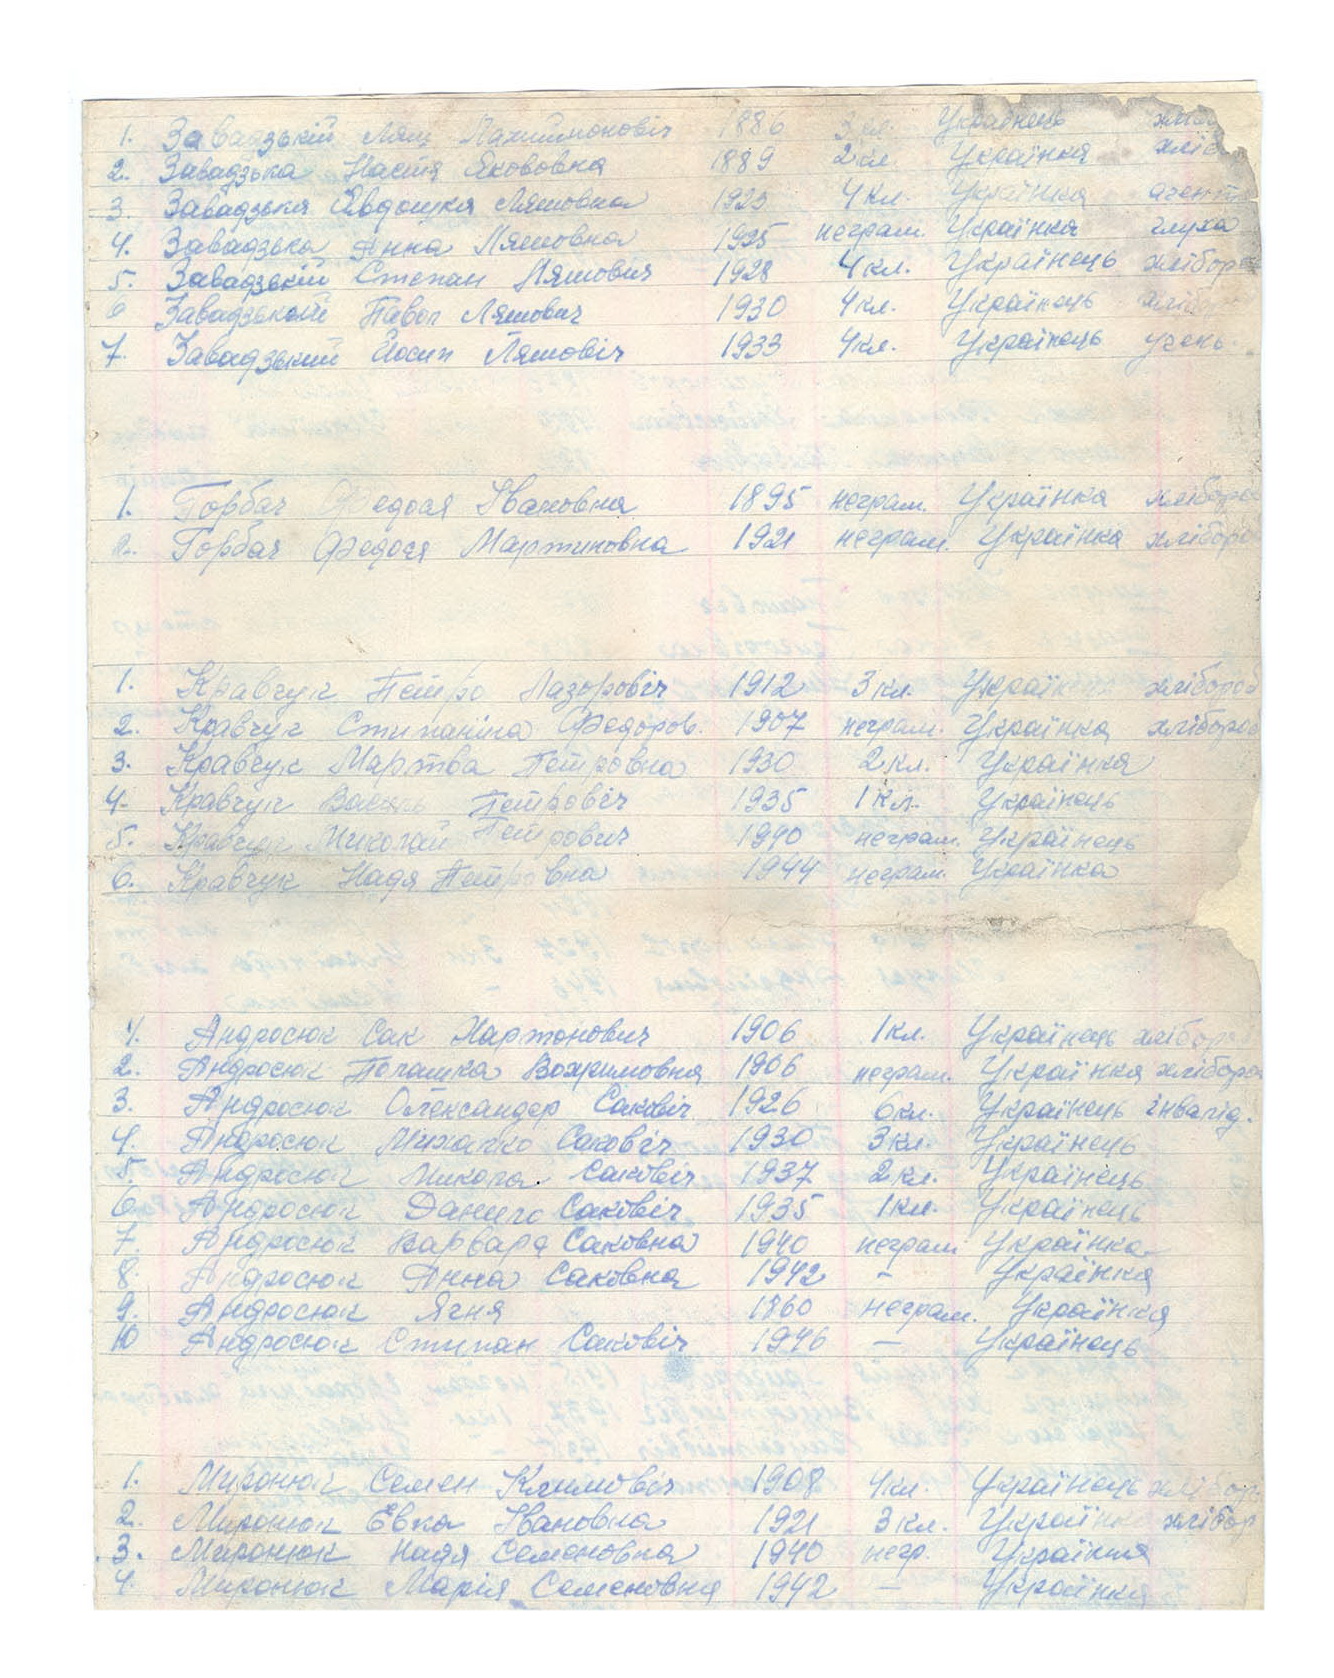 1. Завадзькій Ляш 1886 3 кл. Українець
2. Завадзька Настя Якововна 1889 2 кл. Українка хліб
3. Завадзька Явдошка Ляшовна 1925 4 кл. Українка агент
4. Завадзька Анна Ляшовна 1925 неграм. Українка глуха
5. Завадзькій Степан Ляшович 1928 4 кл. Українець хлібороб
6 Завадзький Павол Ляшович 1930 4 кл. Українець хлібороб
7. Завадзький Йосип Ляшовіч 1933 4 кл. Українець учень.
1. Горбач Федося Івановна 1895 неграм. Українка хлібороб
2. Горбач Федося Мартиновна 1921 неграм. Українка хлібороб
1. Кравчук Петро Лазоровіч 1912 3 кл. хлібороб
2. Кравчук Степаніна Федоров. 1907 неграм. Українка хлібороб
3. Кравчук Мартоа Петровна 1930 2 кл. Українка
4. Кравчук Василь Петровіч 1935 1 кл. Українець
5. Кравчук Миколай Петрович 1940 неграм. Українець
6. Кравчук Надя Петровна 1944 неграм. Українка
1. Андросюк Сак Хартонович 1906 1 кл. Українець хлібороб
2. Андросюк Полашка Вохримовна 1906 неграм. Українка хлібороб
3. Андросюк Олександер Саковіч 1926 6 кл. Українець інвалід.
4. Андросюк Михалко Саковіч 1930 3 кл. Українець
5. Андросюк Микола Саковіч 1937 2 кл. Українець
6. Андросюк Данило Саковіч 1935 1 кл. Українець
7. Андросюк Варвара Саковна 1940 неграм Українка
8. Андросюк Анна Саковна 1942 - Українка
9. Андросюк Ягня 1860 неграм. Українка
10 Андросюк Степан Саковіч 1946 — Українець
1. Миронюк Семен Климовіч 1908 4 кл. Українець хлібор
2. Миронюк Евка Івановна 1921 3 кл. Українка хлібор
3. Миронюк Надя Семеновна 1940 негр. Українка
4. Миронюк Марія Семеновна 1942 — Українка